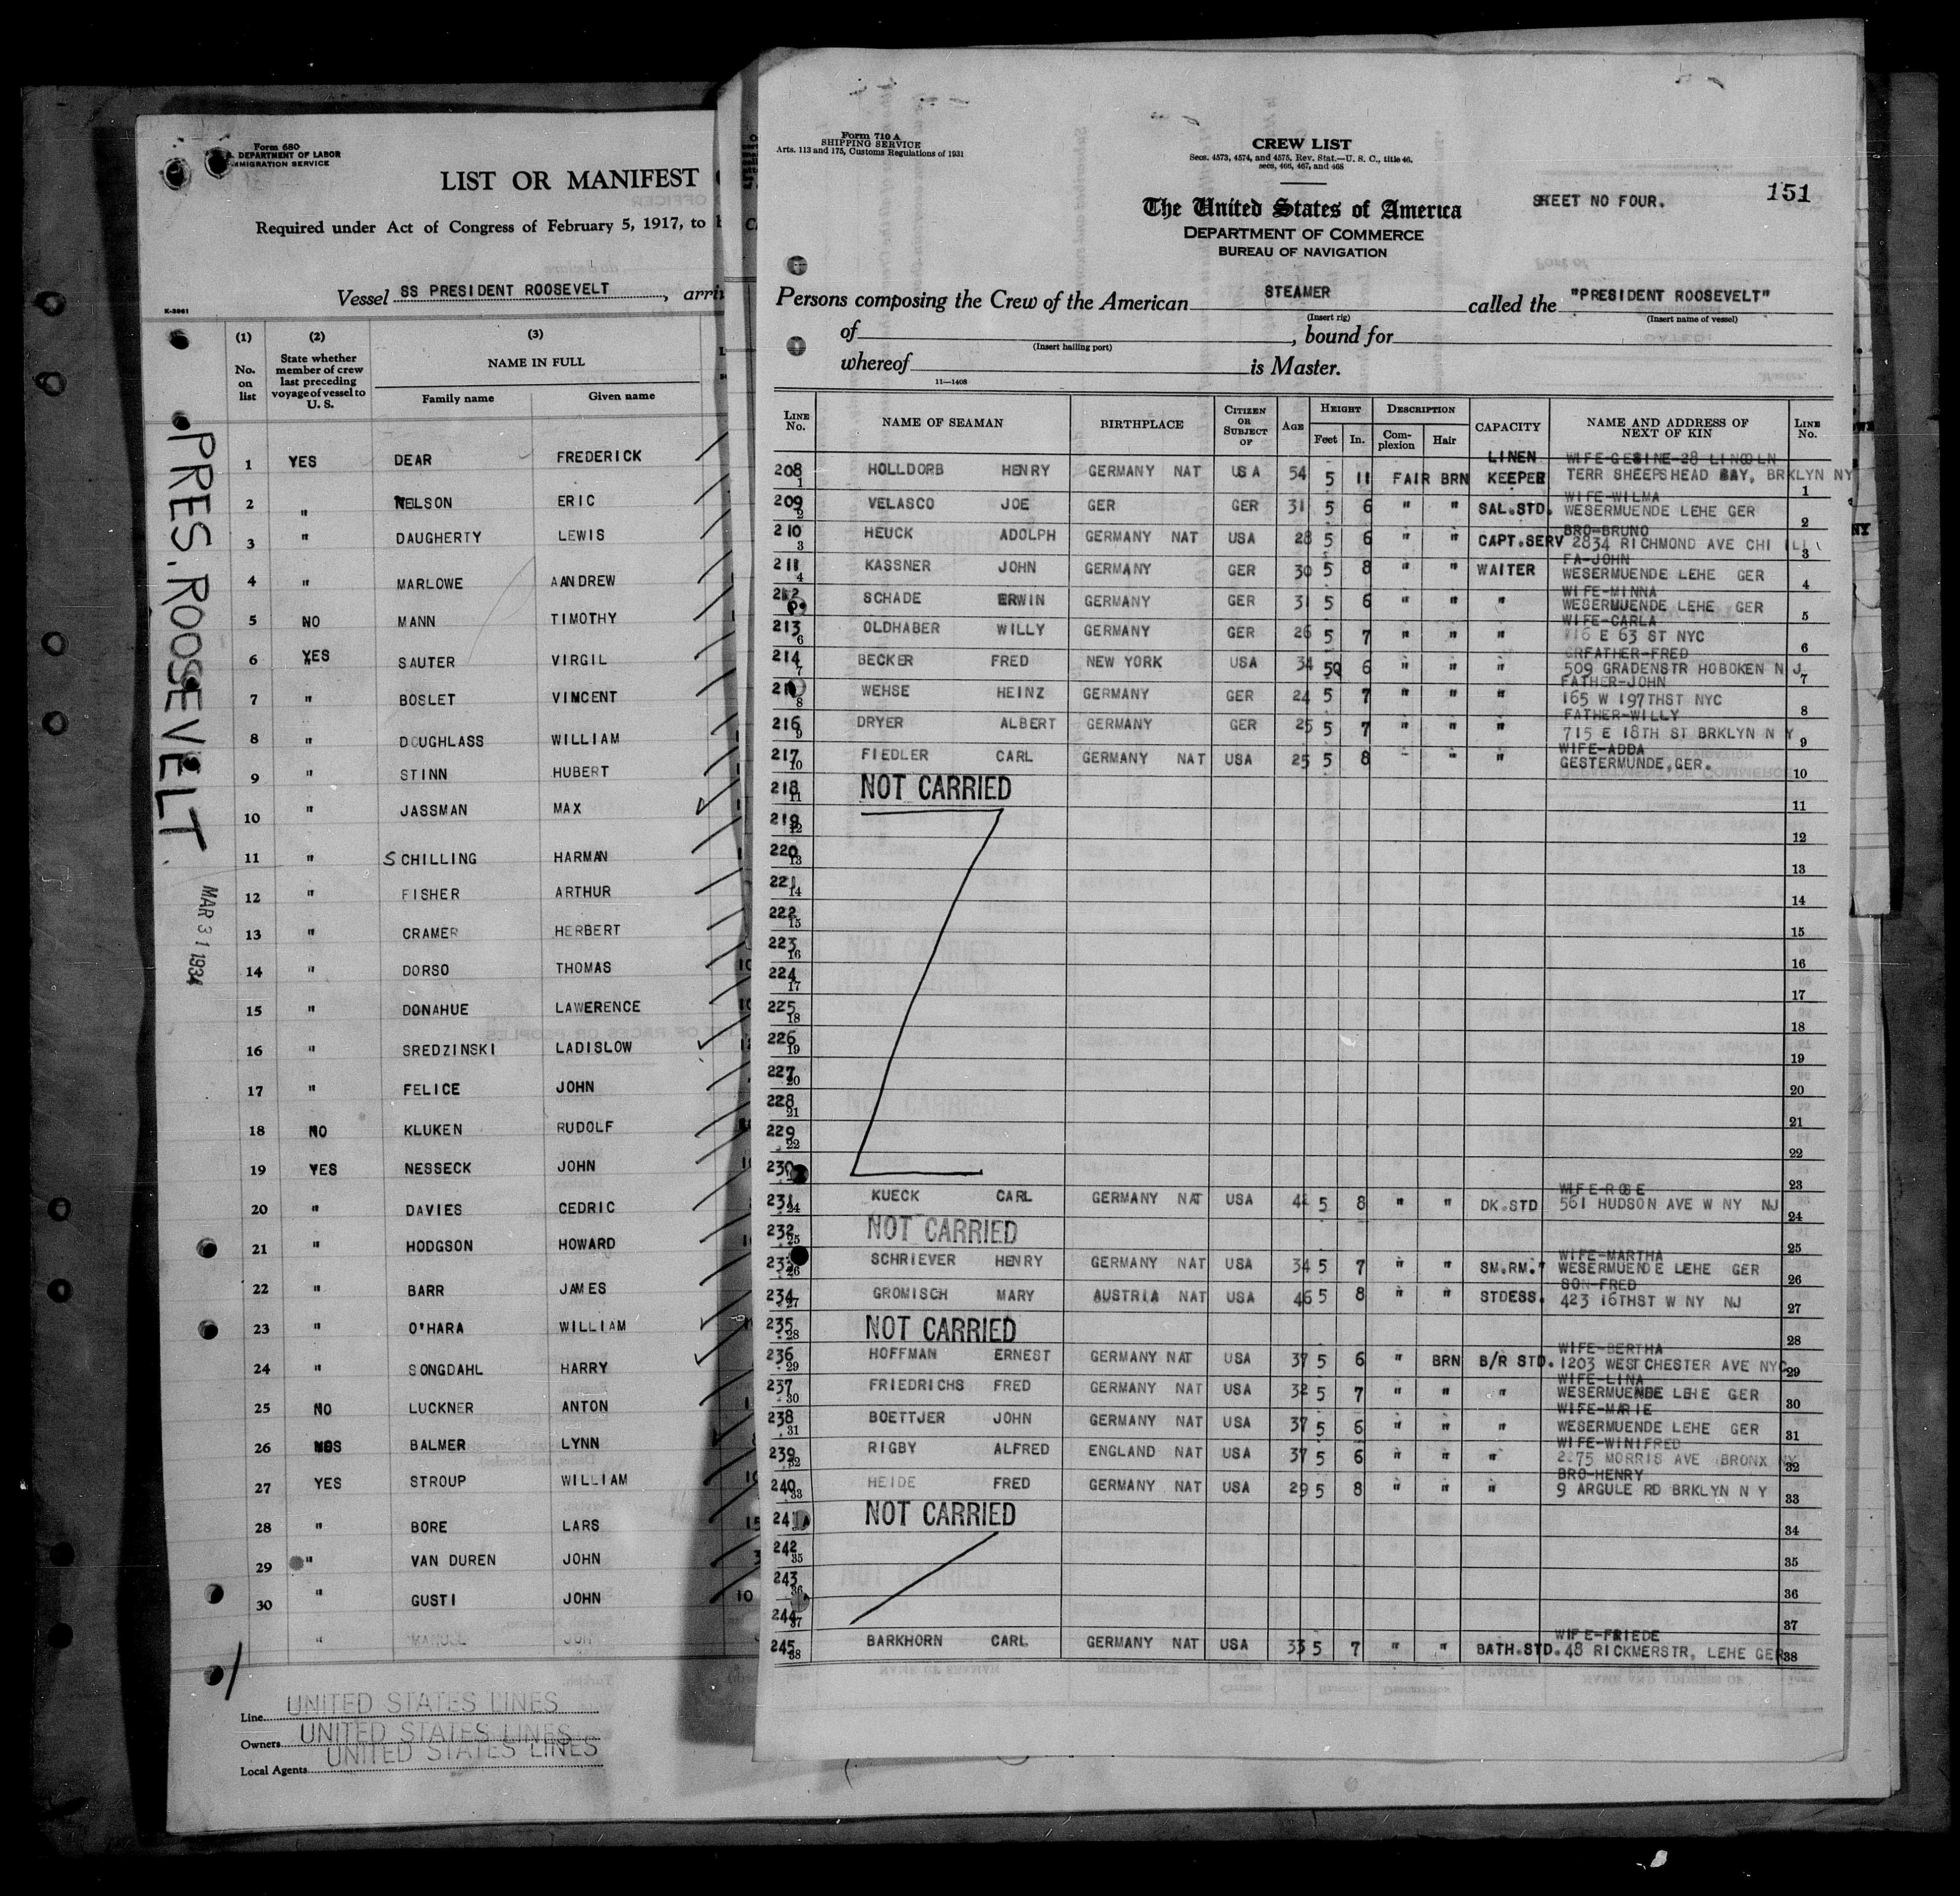 Form 680
DEPARTMENT OF LABOR
IMMIGRATION SERVICE
LIST OR MANIFEST
Required under Act of Congress of February 5, 1917, to
Vessel SS PRESIDENT ROOSEVELT, arri
K-3861
(1) (2) (3)
No. on list
State whether member of crew last preceding voyage of vessel to U. S.
NAME IN FULL
Family name Given name
1 YES DEAR FREDERICK
2 " NELSON ERIC
3 " DAUGHERTY LEWIS
4 " MARLOWE AANDREW
5 NO MANN TIMOTHY
6 YES SAUTER VIRGIL
7 " BOSLET VINCENT
8 " DOUGHLASS WILLIAM
9 " STINN HUBERT
10 " JASSMAN MAX
11 " SCHILLING HARMAN
12 " FISHER ARTHUR
13 " CRAMER HERBERT
14 " DORSO THOMAS
15 " DONAHUE LAWERENCE
16 " SREDZINSKI LADISLOW
17 " FELICE JOHN
18 NO KLUKEN RUDOLF
19 YES NESSECK JOHN
20 " DAVIES CEDRIC
21 " HODGSON HOWARD
22 " BARR JAMES
23 " O'HARA WILLIAM
24 " SONGDAHL HARRY
25 NO LUCKNER ANTON
26 BALMER LYNN
27 YES STROUP WILLIAM
28 " BORE LARS
29 " VAN DUREN JOHN
30 " GUSTI JOHN
"
Line UNITED STATES LINES
Owners UNITED STATES LINES
Local Agents UNITED STATES LINES
PRES. ROOSEVELT.
MAR 31 1934
Form 710 A
SHIPPING SERVICE
Arts. 113 and 175, Customs Regulations of 1931
CREW LIST
Secs. 4573, 4574, and 4575, Rev. Stat.—U. S. C., title 46,
secs, 466, 467, and 468
SHEET NO FOUR.
151
The United States of America
DEPARTMENT OF COMMERCE
BUREAU OF NAVIGATION
Persons composing the Crew of the American STEAMER called the "PRESIDENT ROOSEVELT"
(Insert rig) (Insert name of vessel)
of , bound for
(Insert hailing port)
whereof is Master.
11—1408
LINE No. NAME OF SEAMAN BIRTHPLACE CITIZEN OR SUBJECT OF AGE HEIGHT Feet In. DESCRIPTION Complexion Hair CAPACITY NAME AND ADDRESS OF NEXT OF KIN LINE No.
LINEN WIFE-GESINE-28 LINCOLN
208 1 HOLLDORB HENRY GERMANY NAT USA 54 5 11 FAIR BRN KEEPER TERR SHEEPSHEAD BAY, BRKLYN NY 1
WIFE-WILMA
209 2 VELASCO JOE GER GER 31 5 6 " " SAL.STD. WESERMUENDE LEHE GER 2
BRO-BRUNO
210 3 HEUCK ADOLPH GERMANY NAT USA 28 5 6 " " CAPT.SERV 2834 RICHMOND AVE CHI ILL 3
FA-JOHN
211 4 KASSNER JOHN GERMANY GER 30 5 8 " " WAITER WESERMUENDE LEHE GER 4
WIFE-MINNA
212 SCHADE ERWIN GERMANY GER 31 5 6 " " " WESERMUENDE LEHE GER 5
WIFE-CARLA
213 6 OLDHABER WILLY GERMANY GER 26 5 7 " " " 716 E 63 ST NYC 6
GRFATHER-FRED
214 7 BECKER FRED NEW YORK USA 34 5 6 " " " 509 GRADENSTR HOBOKEN N J 7
FATHER-JOHN
21 8 WEHSE HEINZ GERMANY GER 24 5 7 " " " 165 W 197THST NYC 8
FATHER-WILLY
216 9 DRYER ALBERT GERMANY GER 25 5 7 " " " 715 E 18TH ST BRKLYN N Y 9
WIFE-ADDA
217 10 FIEDLER CARL GERMANY NAT USA 25 5 8 " " " GESTERMUNDE,GER. 10
218 11 NOT CARRIED 11
219 12 12
220 13 13
221 14 14
222 15 15
223 16 16
224 17 17
225 18 18
226 19 19
227 20 20
228 21 21
229 22 22
230 23
WIFE-ROSE
231 24 KUECK CARL GERMANY NAT USA 42 5 8 " " DK.STD 561 HUDSON AVE W NY NJ 24
232 25 NOT CARRIED 25
WIFE-MARTHA
233 26 SCHRIEVER HENRY GERMANY NAT USA 34 5 7 " " SM.RM." WESERMUENDE LEHE GER 26
SON-FRED
234 27 GROMISCH MARY AUSTRIA NAT USA 46 5 8 " " STDESS. 423 16THST W NY NJ 27
235 28 NOT CARRIED 28
WIFE-BERTHA
236 29 HOFFMAN ERNEST GERMANY NAT USA 37 5 6 " BRN B/R STD. 1203 WESTCHESTER AVE NYC 29
WIFE-LINA
237 30 FRIEDRICHS FRED GERMANY NAT USA 32 5 7 " " " WESERMUENDE LEHE GER 30
WIFE-MARIE
238 31 BOETTJER JOHN GERMANY NAT USA 37 5 6 " " " WESERMUENDE LEHE GER 31
WIFE-WINIFRED
239 32 RIGBY ALFRED ENGLAND NAT USA 37 5 6 " " " 2275 MORRIS AVE BRONX NY 32
BRO-HENRY
240 33 HEIDE FRED GERMANY NAT USA 29 5 8 " " " 9 ARGULE RD BRKLYN N Y 33
241 NOT CARRIED 34
242 35 35
243 36 36
244 37 37
WIFE-FRIEDE
245 38 BARKHORN CARL GERMANY NAT USA 33 5 7 " " BATH.STD. 48 RICKMERSTR, LEHE GER 38